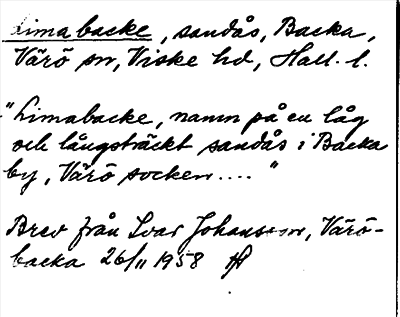 Limabacke, sandås, Backa,
Värö sn, Viske hd, Hall. l.
"Limabacke, namn på en låg
och långsträckt sandås i Backa
by, Värö socken.... "
Brev från Ivar Johansson, Värö-
backa 26/11 1958